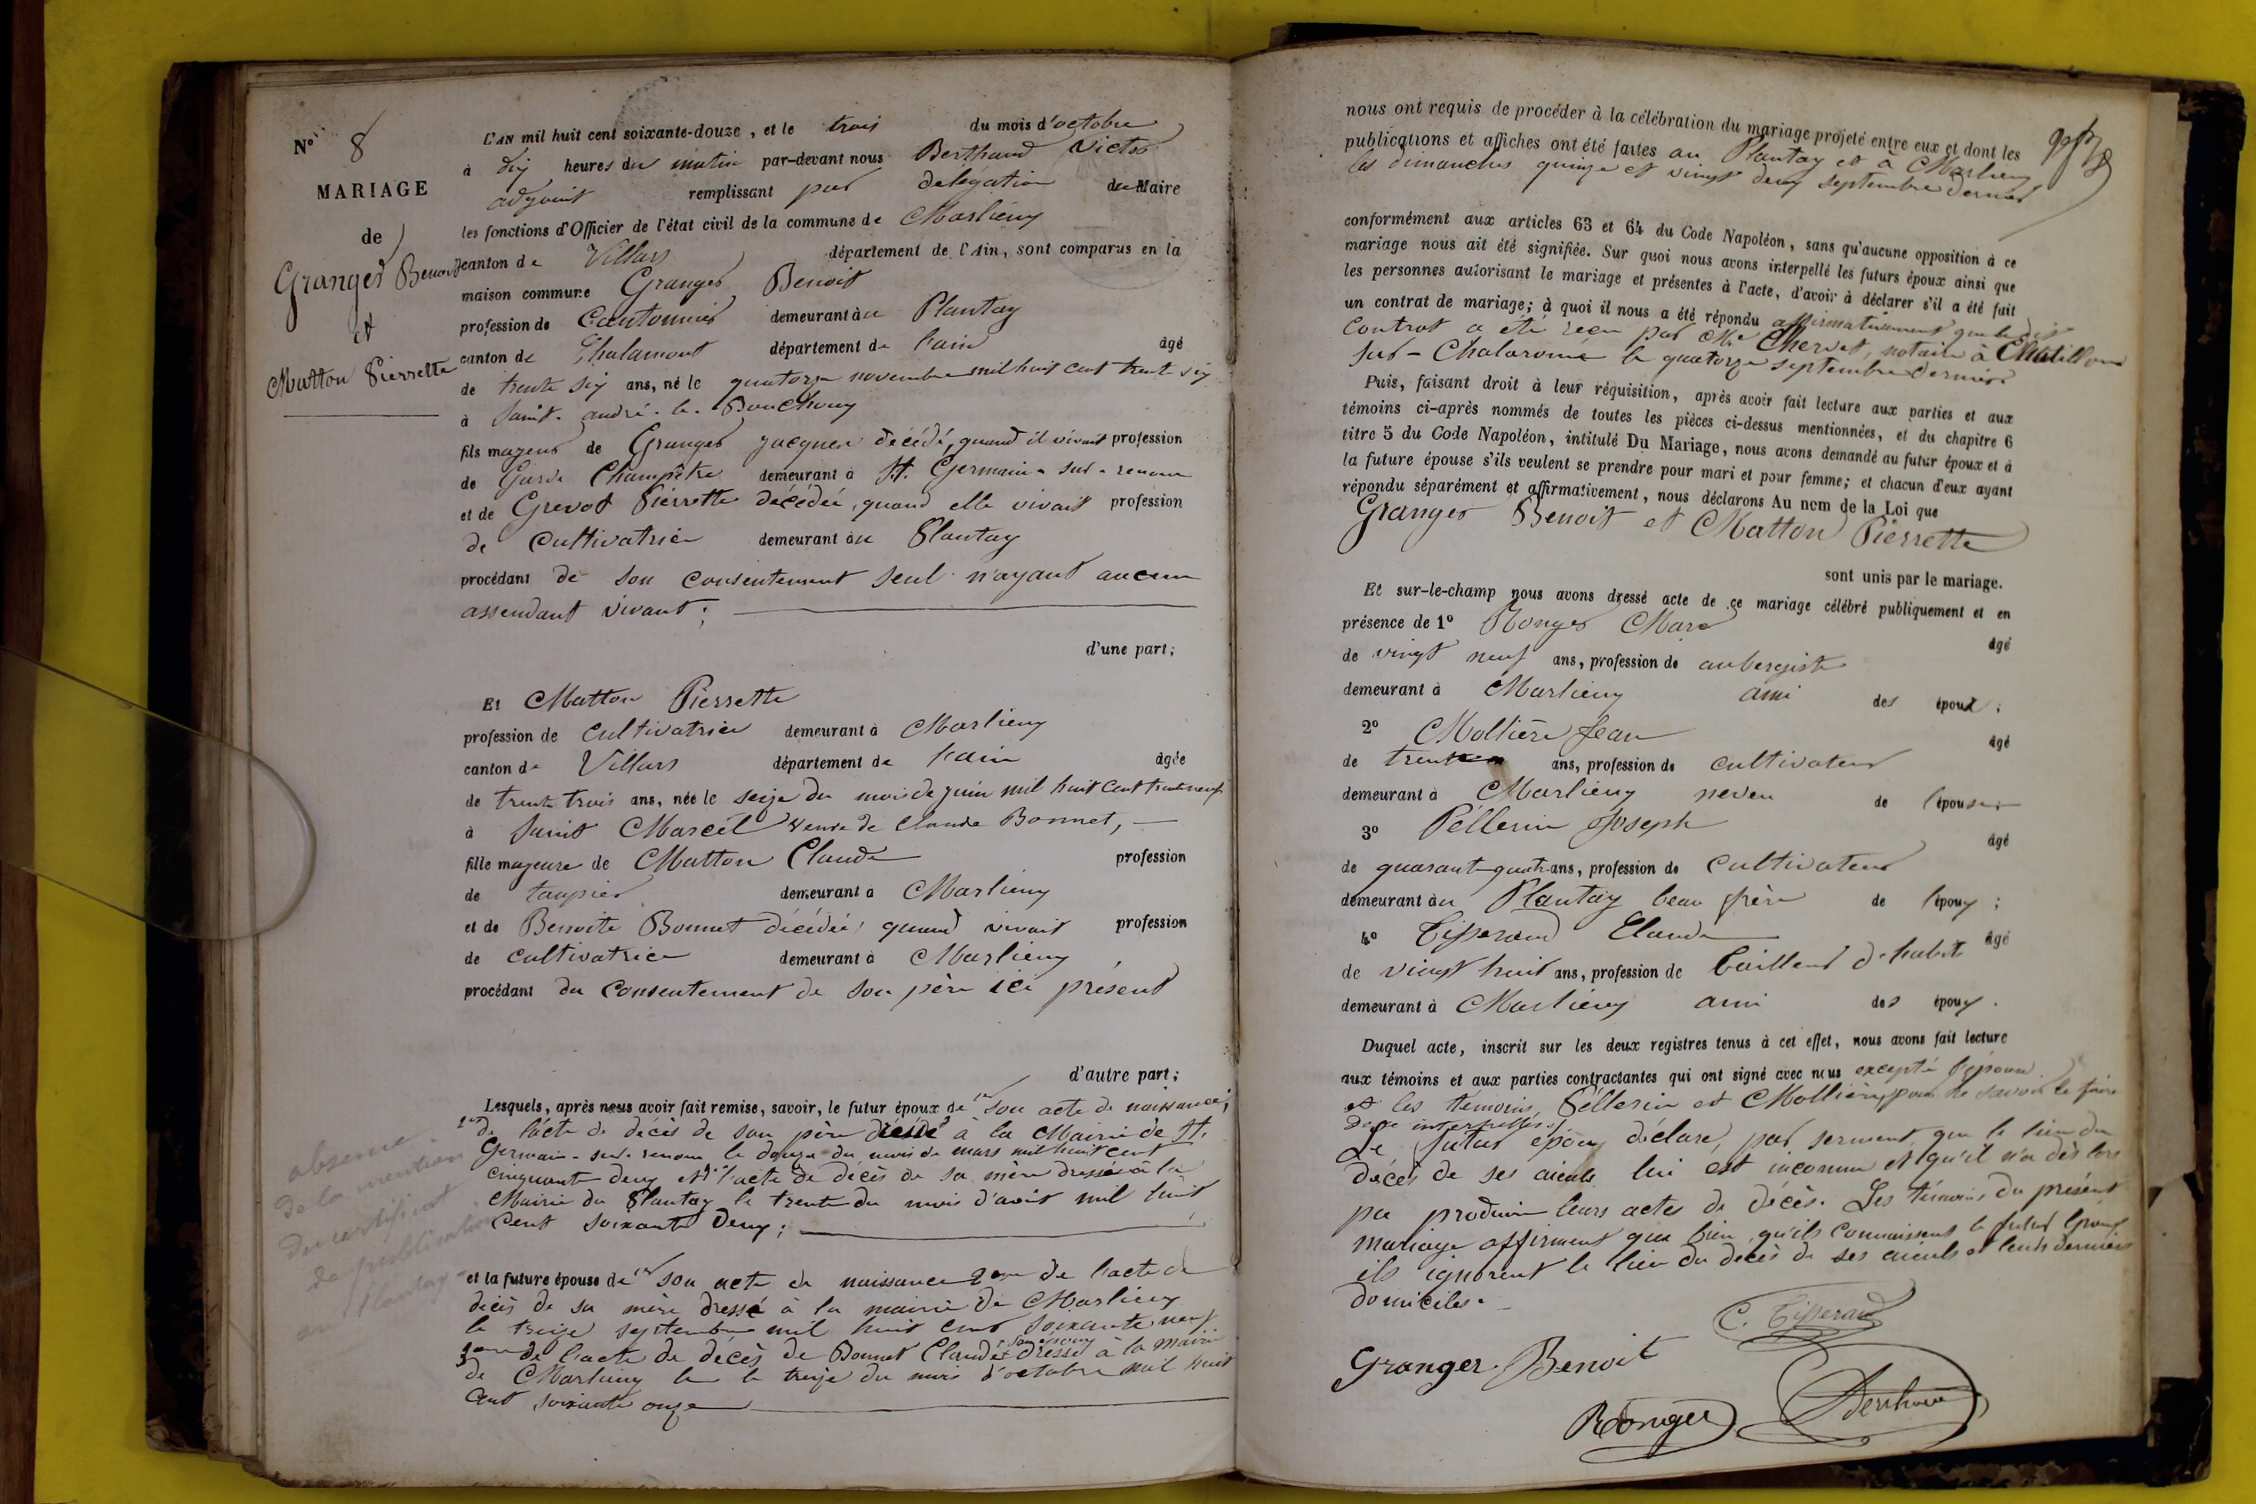 N° 8
MARIAGE
de
Granger Benoit
et
Matton Pierrette
L'AN mil huit cent soixante-douze, et le trois du mois d'octobre
à dix heures du matin par-devant nous Berthaud Victor
adjoint remplissant par délégation du Maire
les fonctions d'Officier de l'état civil de la commune de Marlieux
canton de Villars département de l'Ain, sont comparus en la
maison commune Granger Benoit
profession de Cantonnier demeurant au Plantay
canton de Chalamont département de l'ain âgé
de trente six ans, né le quatorze novembre mil huit cent trente six
à Saint-andré-le-Bouchoux
fils majeur de Granger jacques décédé, quand il vivait profession
de Garde Champêtre demeurant à St. Germain-sur-renom
et de Grevot Pierrette décédée, quand elle vivait profession
de Cultivatrice demeurant au Plantay
procédant de son consentement seul n'ayant aucun
assendant vivant;
d'une part;
Et Matton Pierrette
profession de Cultivatrice demeurant à Marlieux
canton de Villars département de l'ain âgée
de trente trois ans, née le seize du mois de juin mil huit cent trente neuf
à Saint Marcel veuve de Claude Bonnet,
fille majeure de Matton Claude profession
de taupier demeurant à Marlieux
et de Benoite Bonnet décédée, quand vivait profession
de Cultivatrice demeurant à Marlieux
procédant du Consentement de son père ici présent
d'autre part;
Lesquels, après nous avoir fait remise, savoir, le futur époux de 1er son acte de naissance;
2em de l'acte de décès de son père dressé à la Mairie de St.
Germain-sur-renom le douze du mois de mars mil huit cent
cinquante deux et 3° l'acte de décès de sa mère dressé à la
Mairie du Plantay le trente du mois d'août mil huit
Cent soixante Deux;
absence
de la mention
du certificat
de publication
au Plantay
et la future épouse de 1er son acte de naissance 2em de l'acte de
décès de sa mère dressé à la mairie de Marlieux
le treize septembre mil huit cent soixante neuf
3em de l'acte de décès de Bonnet Claude son époux dressé à la mairie
de Marlieux le le treize du mois d'octobre mil huit
cent soixante onze
nous ont requis de procéder à la célébration du mariage projeté entre eux et dont les
publications et affiches ont été faites au Plantay et à Marlieux
les dimanches quinze et vingt deux septembre dernier
conformément aux articles 63 et 64 du Code Napoléon, sans qu'aucune opposition à ce
mariage nous ait été signifiée. Sur quoi nous avons interpellé les futurs époux ainsi que
les personnes autorisant le mariage et présentes à l'acte, d'avoir à déclarer s'il a été fait
un contrat de mariage; à quoi il nous a été répondu affirmativement que le dit
Contrat a été reçu par Me Chervet, notaire à Chatillon
sur-Chalaronne le quatorze septembre dernier
Puis, faisant droit à leur réquisition, après avoir fait lecture aux parties et aux
témoins ci-après nommés de toutes les pièces ci-dessus mentionnées, et du chapitre 6
titre 5 du Code Napoléon, intitulé Du Mariage, nous avons demandé au futur époux et à
la future épouse s'ils veulent se prendre pour mari et pour femme; et chacun d'eux ayant
répondu séparément et affirmativement, nous déclarons Au nom de la Loi que
Granger Benoit et Matton Pierrette
sont unis par le mariage.
Et sur-le-champ nous avons dressé acte de ce mariage célébré publiquement et en
présence de 1° Ronger Marc âgé
de vingt neuf ans, profession de aubergiste
demeurant à Marlieux ami des époux;
2° Mollière Jean âgé
de trente ans, profession de cultivateur
demeurant à Marlieux neveu de l'épouse;
3° Péllerin Joseph âgé
de quarant-quatre ans, profession de Cultivateur
demeurant au Plantay beau frère de l'époux;
4° Tisserand Claude âgé
de vingt huit ans, profession de tailleur d'habit
demeurant à Marlieux ami des époux.
Duquel acte, inscrit sur les deux registres tenus à cet effet, nous avons fait lecture
aux témoins et aux parties contractantes qui ont signé avec nous excepté l'épouse
et les témoins, Péllerin et Mollière, pour ne savoir le faire
de ce interpellés.
Le futur époux déclare, par serment que le lieu du
décès de ses aïeuls lui est inconnu et qu'il n'a dès lors
pu produire leurs actes de décès. Les témoins du présent
mariage affirment que bien qu'ils connaissent le futur époux
ils ignorent le lieu du décès de ses aieuls et leurs derniers
domiciles.
C. Tisserand
Granger Benoit
Ronger
Berthaud